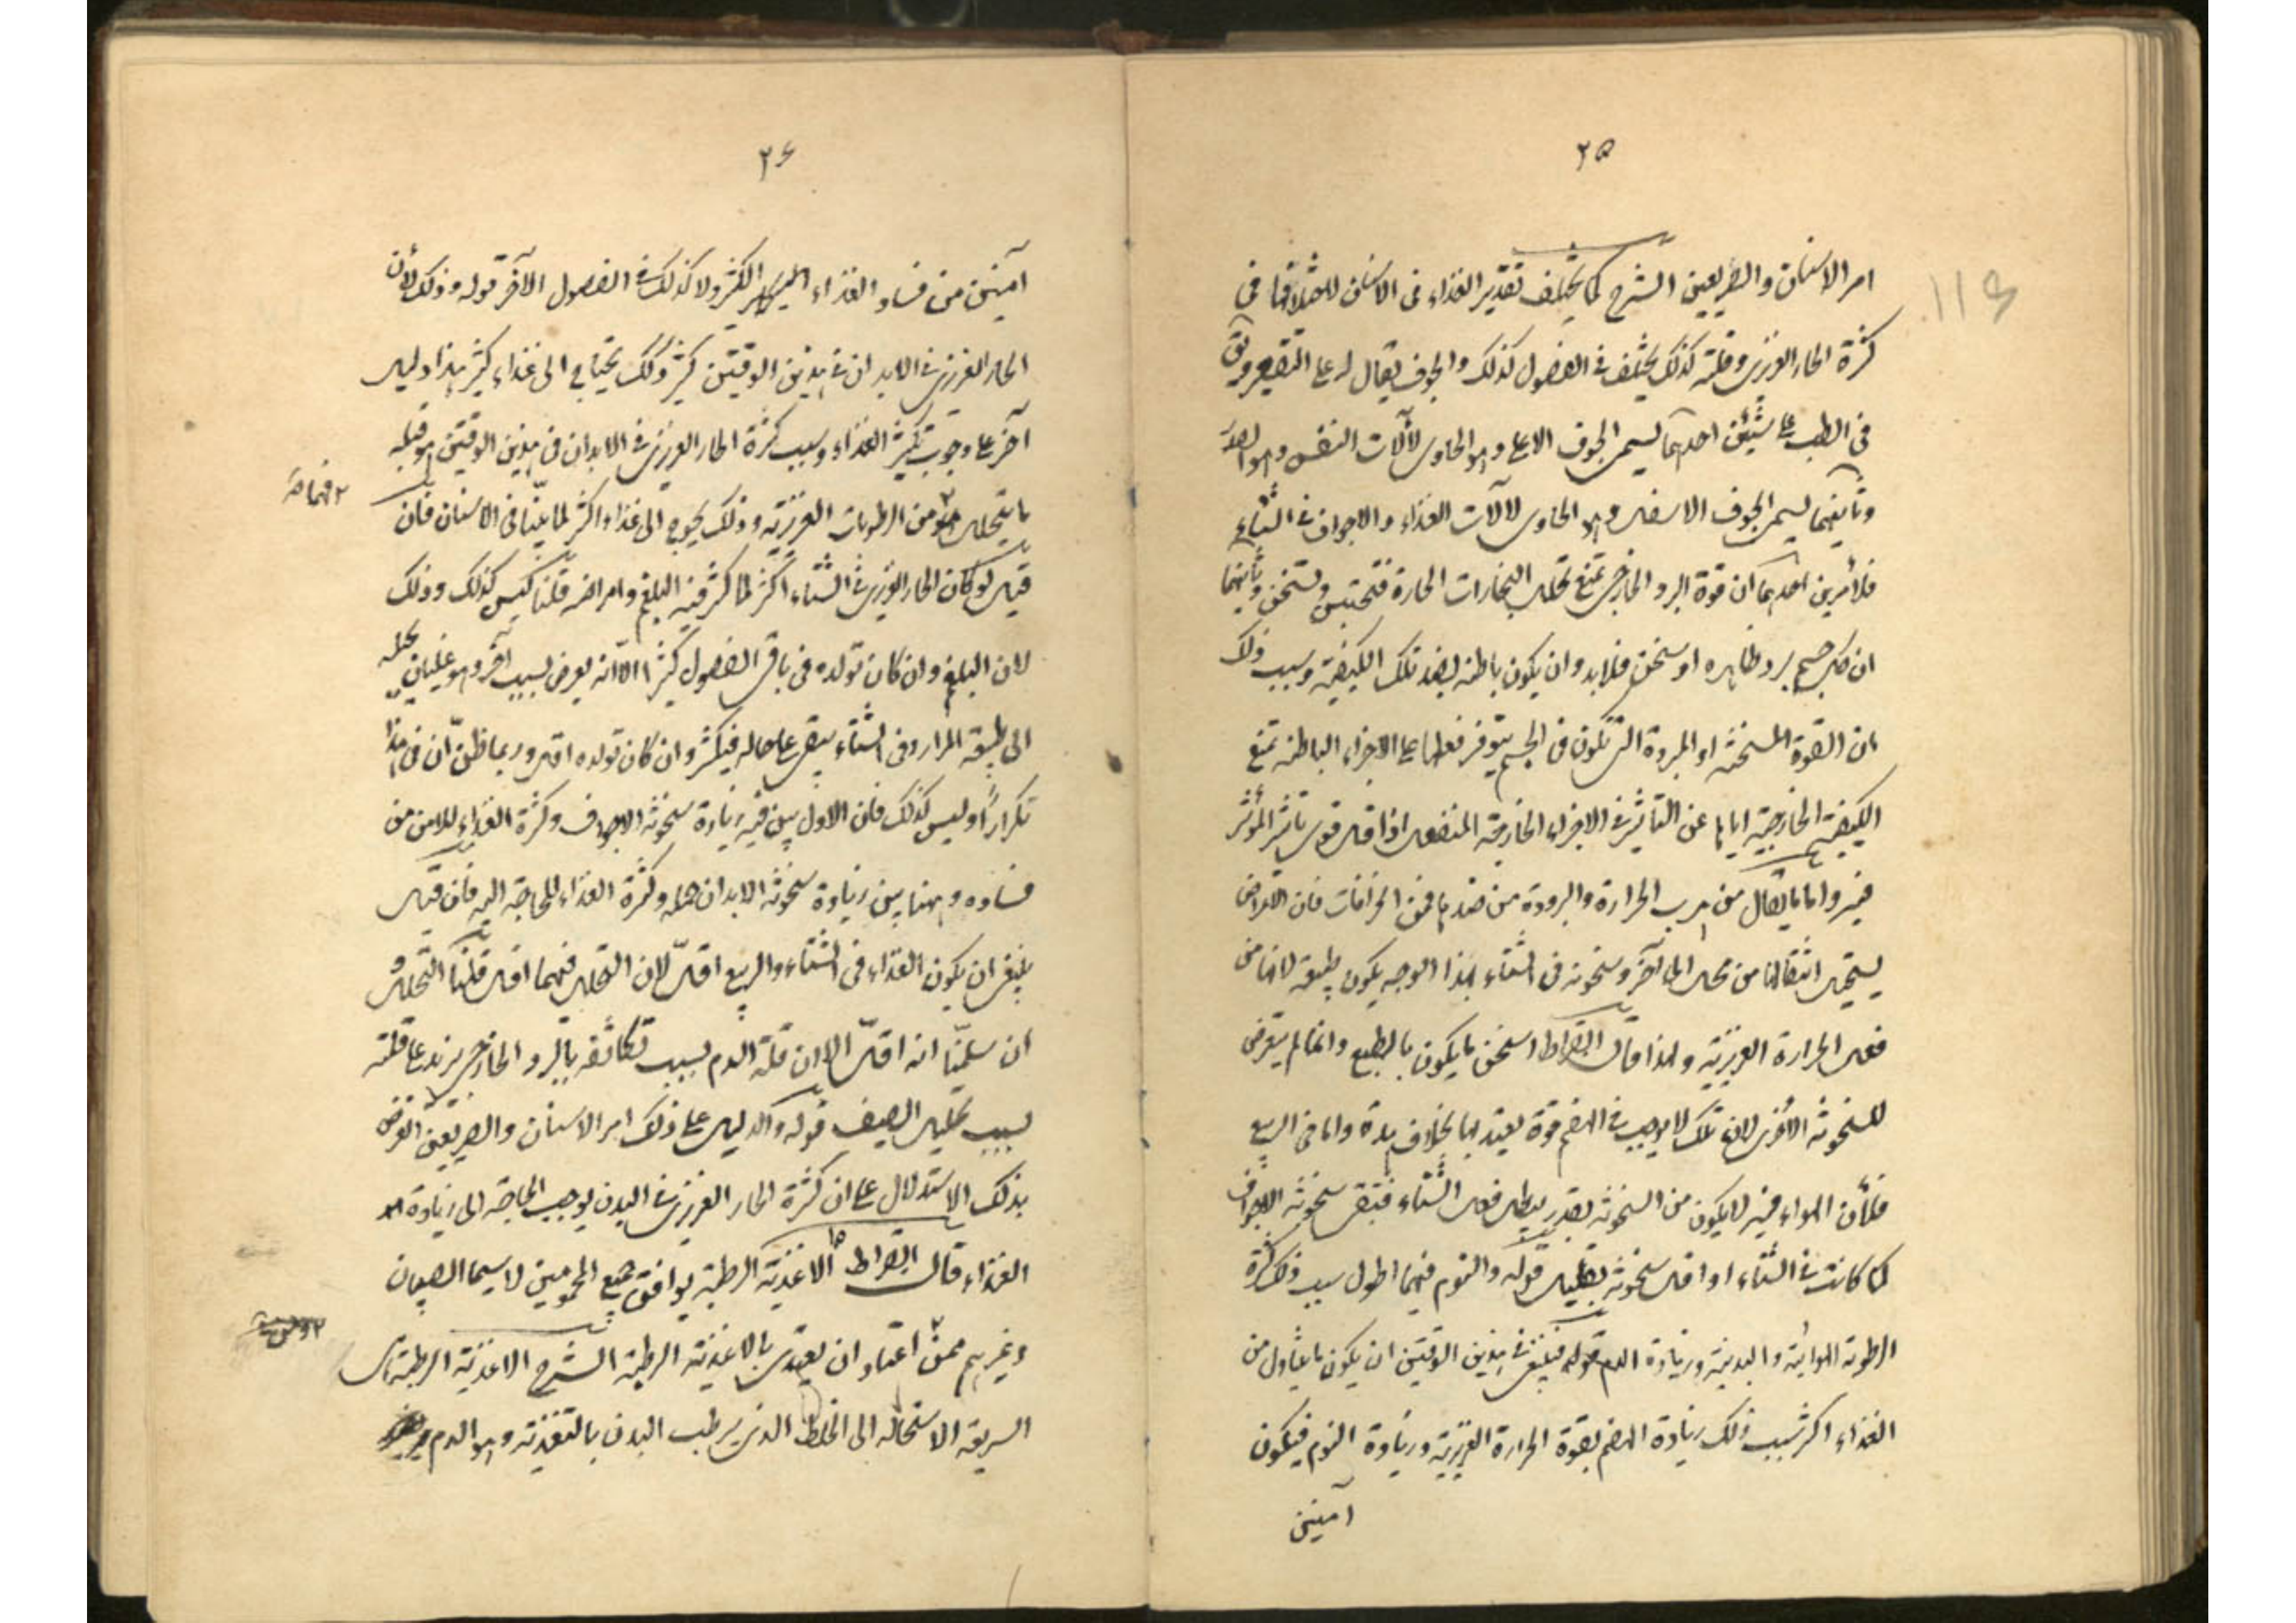 ٢٥
امر الاسنان والصريعين الشرح كما يختلف تقدير الغذاء فى الاسنان لاختلافها فى
كثرة الحار الغريزى وقلته كذلك يختلف فى الفصول كذلك والجوف يقال لا على التقعير ويق
فى الطب على شيئين احدهما يسمى الجوف الاعلى وهو الحاوى لآلات النفس وهو الصدر
وثانيهما يسمى الجوف الاسفل وهو الحاوى لآلات الغذاء والاجواف فى الشتاء
فلأمرين احدهما ان قوة البرد الخارجى تمنع تحلل البخارات الحارة فتحتبس وتسخن وثانيهما
ان كل جسم برد ظاهره او سخن فلا بد وان يكون باطنه بضد تلك الكيفية وسبب ذلك
ان القوة المسخنة او المبردة التى تكون فى الجسم يتوفر فعلها على الاجزاء الباطنة تمنع
الكيفية الخارجية اياها عن التأثير فى الاجزاء الخارجة المنفعل اذا قل قوى تاثير المؤثر
فيه واما ما يقال من هرب الحرارة والبرودة من ضدها فمن الخرافات فان الاعراض
يستحيل انتقالها من محل الى آخر وسخونة فى الشتاء بهذا الوجه يكون طبيعة لانها من
فعل الحرارة الغريزية ولهذا قال ابقراط اسخن ما يكون بالطبع وانما لم يتعرض
للسخونة الاخرى لان تلك لا يوجب فى الهضم قوة يعتد بها بخلاف هذه واما فى الربيع
فلأن الهواء فيه لا يكون من السخونة بقدر يبطل فعل الشتاء فتبقى سخونة الاجواف
كما كانت فى الشتاء او اقل سخونة بقليل قوله والنوم فيهما اطول سبب ذلك كثرة
الرطوبة الهوائية والبدنية وزيادة الدم قوله فينبغى فى هذين الوقتين ان يكون ما يتناول من
الغذاء اكثر سبب ذلك زيادة الهضم بقوة الحرارة الغريزية وزيادة النوم فيكون
آمنين
٢۶
آمنين من فساد الغذاء الكثير ولا كذلك فى الفصول الآخر قوله وذلك لأن
الحار الغريزى فى الابدان فى هذين الوقتين كثير ولذلك يحتاج الى غذاء كثير هذا دليل
آخر على وجوب تكثير الغذاء وسبب كثرة الحار الغريزى فى الابدان فى هذين الوقتين هو قلة
ما يتحلل من الرطوبات الغريزية وذلك يحوج الى غذاء اكثر لما بينا فى الاسنان فان
قيل لو كان الحار الغريزى فى الشتاء اكثر لما كثر فيه البلغم وامراضه قلنا ليس كذلك وذلك
لان البلغم وان كان تولده فى باقى الفصول كثيرا الا انه يعرض لسبب آخر وهو غليان يحيله
الى طبيعة المرار وفى الشتاء يبقى على حاله فيكثر وان كان تولده اقل وربما ظن ان فى هذا
تكرارا وليس كذلك فان الاول بين فيه زيادة سخونة الاجواف وكثرة الغذاء للامن من
فساده وههنا بين زيادة سخونة الابدان جملة وكثرة الغذاء للحاجة اليه فان قيل
ينبغى ان يكون الغذاء فى الشتاء والربيع اقل لان التحلل فيهما اقل قلنا التحلل و
ان سلمنا انه اقل الا ان قلة الدم بسبب تكاثفه بالبرد الخارجى يزيد على قلته
بسبب تحليل الصيف قوله والدليل على ذلك امر الاسنان والصريعين الغرض
بذلك الاستدلال على ان كثرة الحار الغريزى فى البدن يوجب الحاجة الى زيادة
الغذاء قال ابقراط الاغذية الرطبة يوافق جميع المحمومين لا سيما الصبيان
وغيرهم ممن اعتاد ان يغتذى بالاغذية الرطبة الشرح الاغذية الرطبة هى
السريعة الاستحالة الى الخلط الذى يرطب البدن بالتغذية وهو الدم